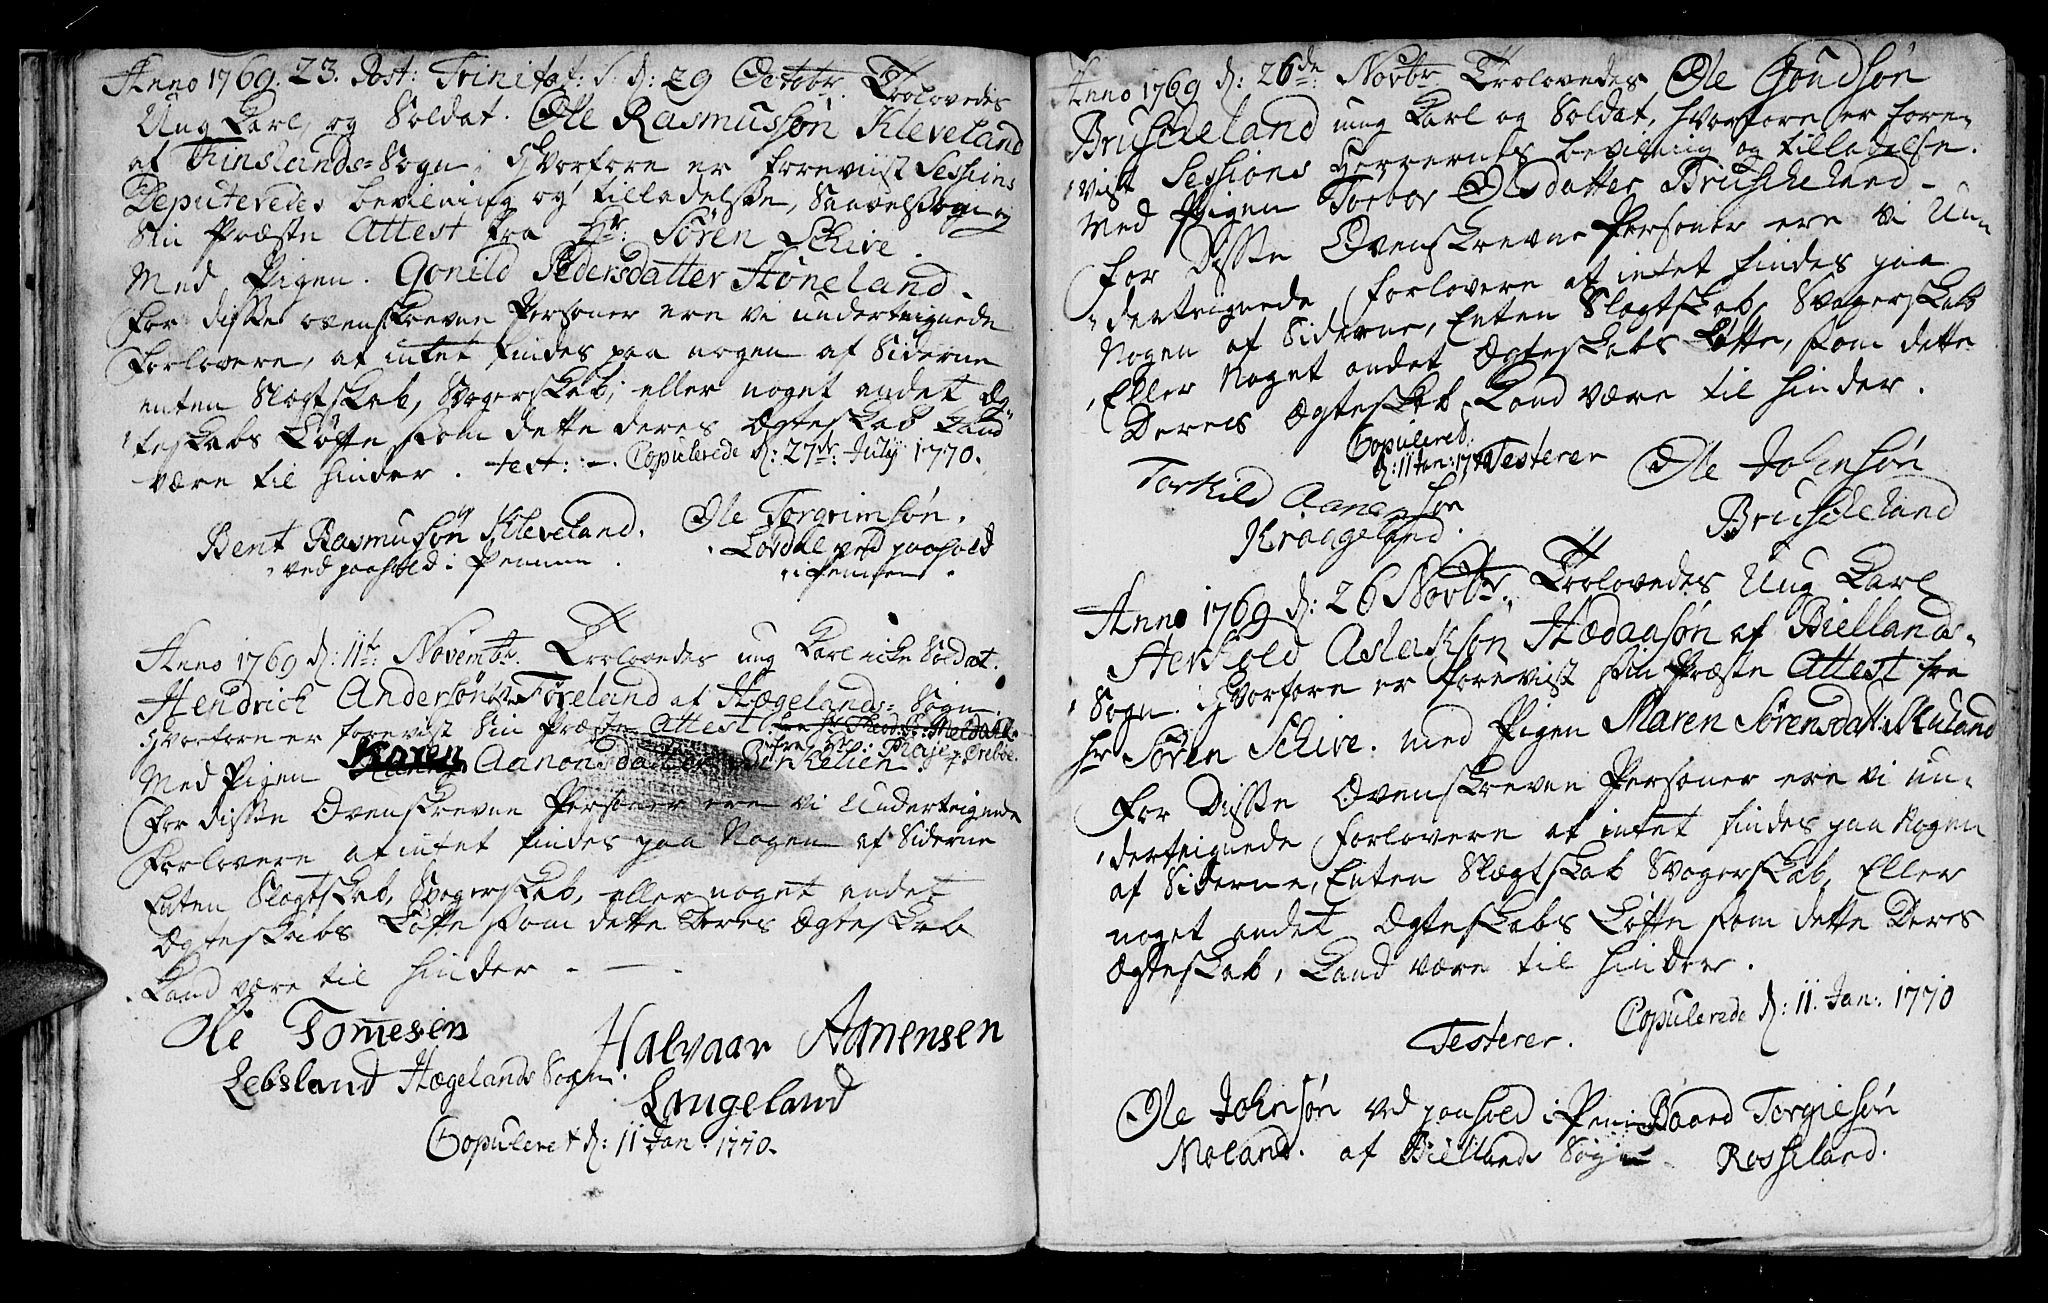 Anno 1769. 23. Post: Trinitat: S: d: 29 Octobr. Trolovedes
Ung Karl og Soldat. Ole Rasmussøn Kleveland
af Finslands=Sogn, hvorfore er foreviist Sessions
Deputeredes bevilning og tilladelse, Saavelsom og
Sin Præstes Attest fra Hr: Søren Schive.
Med Pigen. Gonild Pedersdatter Støneland.
For disse ovenskrevne Personer ere vi underteignede
Forlovere, at intet findes paa nogen af Siderne
enten Slegtskab, Svogerskab, eller noget andet Æg-
teskabs Løfte som dette deres Ægteskab kand
være til hinder. test: Copulerede d: 27de July 1770.
Bent Rasmussøn Kleveland.
ved paahold i Pennen
Ole Torgrimsøn.
Løvdal ved paahold
i Pennen.
Anno 1769 d: 11te Novembr. Trolovedes ung Karl icke Soldat.
Hendrich Andersøn Føreland af Hægelands=Sogn.
hvorfore er forevist Sin Præstes Attest
Med Pigen Karen Aanonsdatter Birkelien.
For disse Ovenskrevne Personer ere vi Underteignede
Forlovere at intet findes paa Nogen af Siderne
Enten Slegtskab, Svogerskab, eller noget andet
Ægteskabs Løfte som dette Deres Ægteskab
kand være til hinder.
Ole Tomesen
Lebsland Hægelands Sogn.
Halvaar Aanensen
Langeland
Copuleret d: 11 Jan: 1770.
Anno 1769 d: 26de Novbr Trolovedes Ole Gundsøn
Bruskeland ung Karl og Soldat, hvorfore er fore-
vist Sessions Herrernes bevilning og tilladelse.
Med Pigen Torbor Olsdatter Bruskeland
For Disse Ovenskrevne Personer ere vi Un-
derteignede Forlovere at intet findes paa
Nogen af Siderne, Enten Slegtskab, Svogerskab
Eller Noget andet Ægteskabs Løfte, som dette
Deres Ægteskab kand være til hinder.
Copulered
d: 11 Jan: 1770 Testerer
Torkild Aanensøn
Kraageland.
Ole Johnsøn
Bruskeland
Anno 1769 d: 26 Novbr. Trolovedes Ung Karl
Herkold Aslaksøn Hædaasøn af Biellands-
Sogn. hvorfore er forevist sin Præstes Attest fra
hr Søren Schive. med Pigen Maren Sørensdatter
For Disse Ovenskrevne Personer ere vi un-
derteignede Forlovere at intet findes paa Nogen
af Siderne, Enten Slegtskab Svogerskab, Eller
noget andet Ægteskabs Løfte som dette Deres
Ægteskab, kand være til hinder.
Testerer. Copulerede d: 11. Jan: 1770
Ole Johnsøn ved paahold i Pennen
Moland. af Biellands Sogn
Baard Torgiesøn
Rosseland.